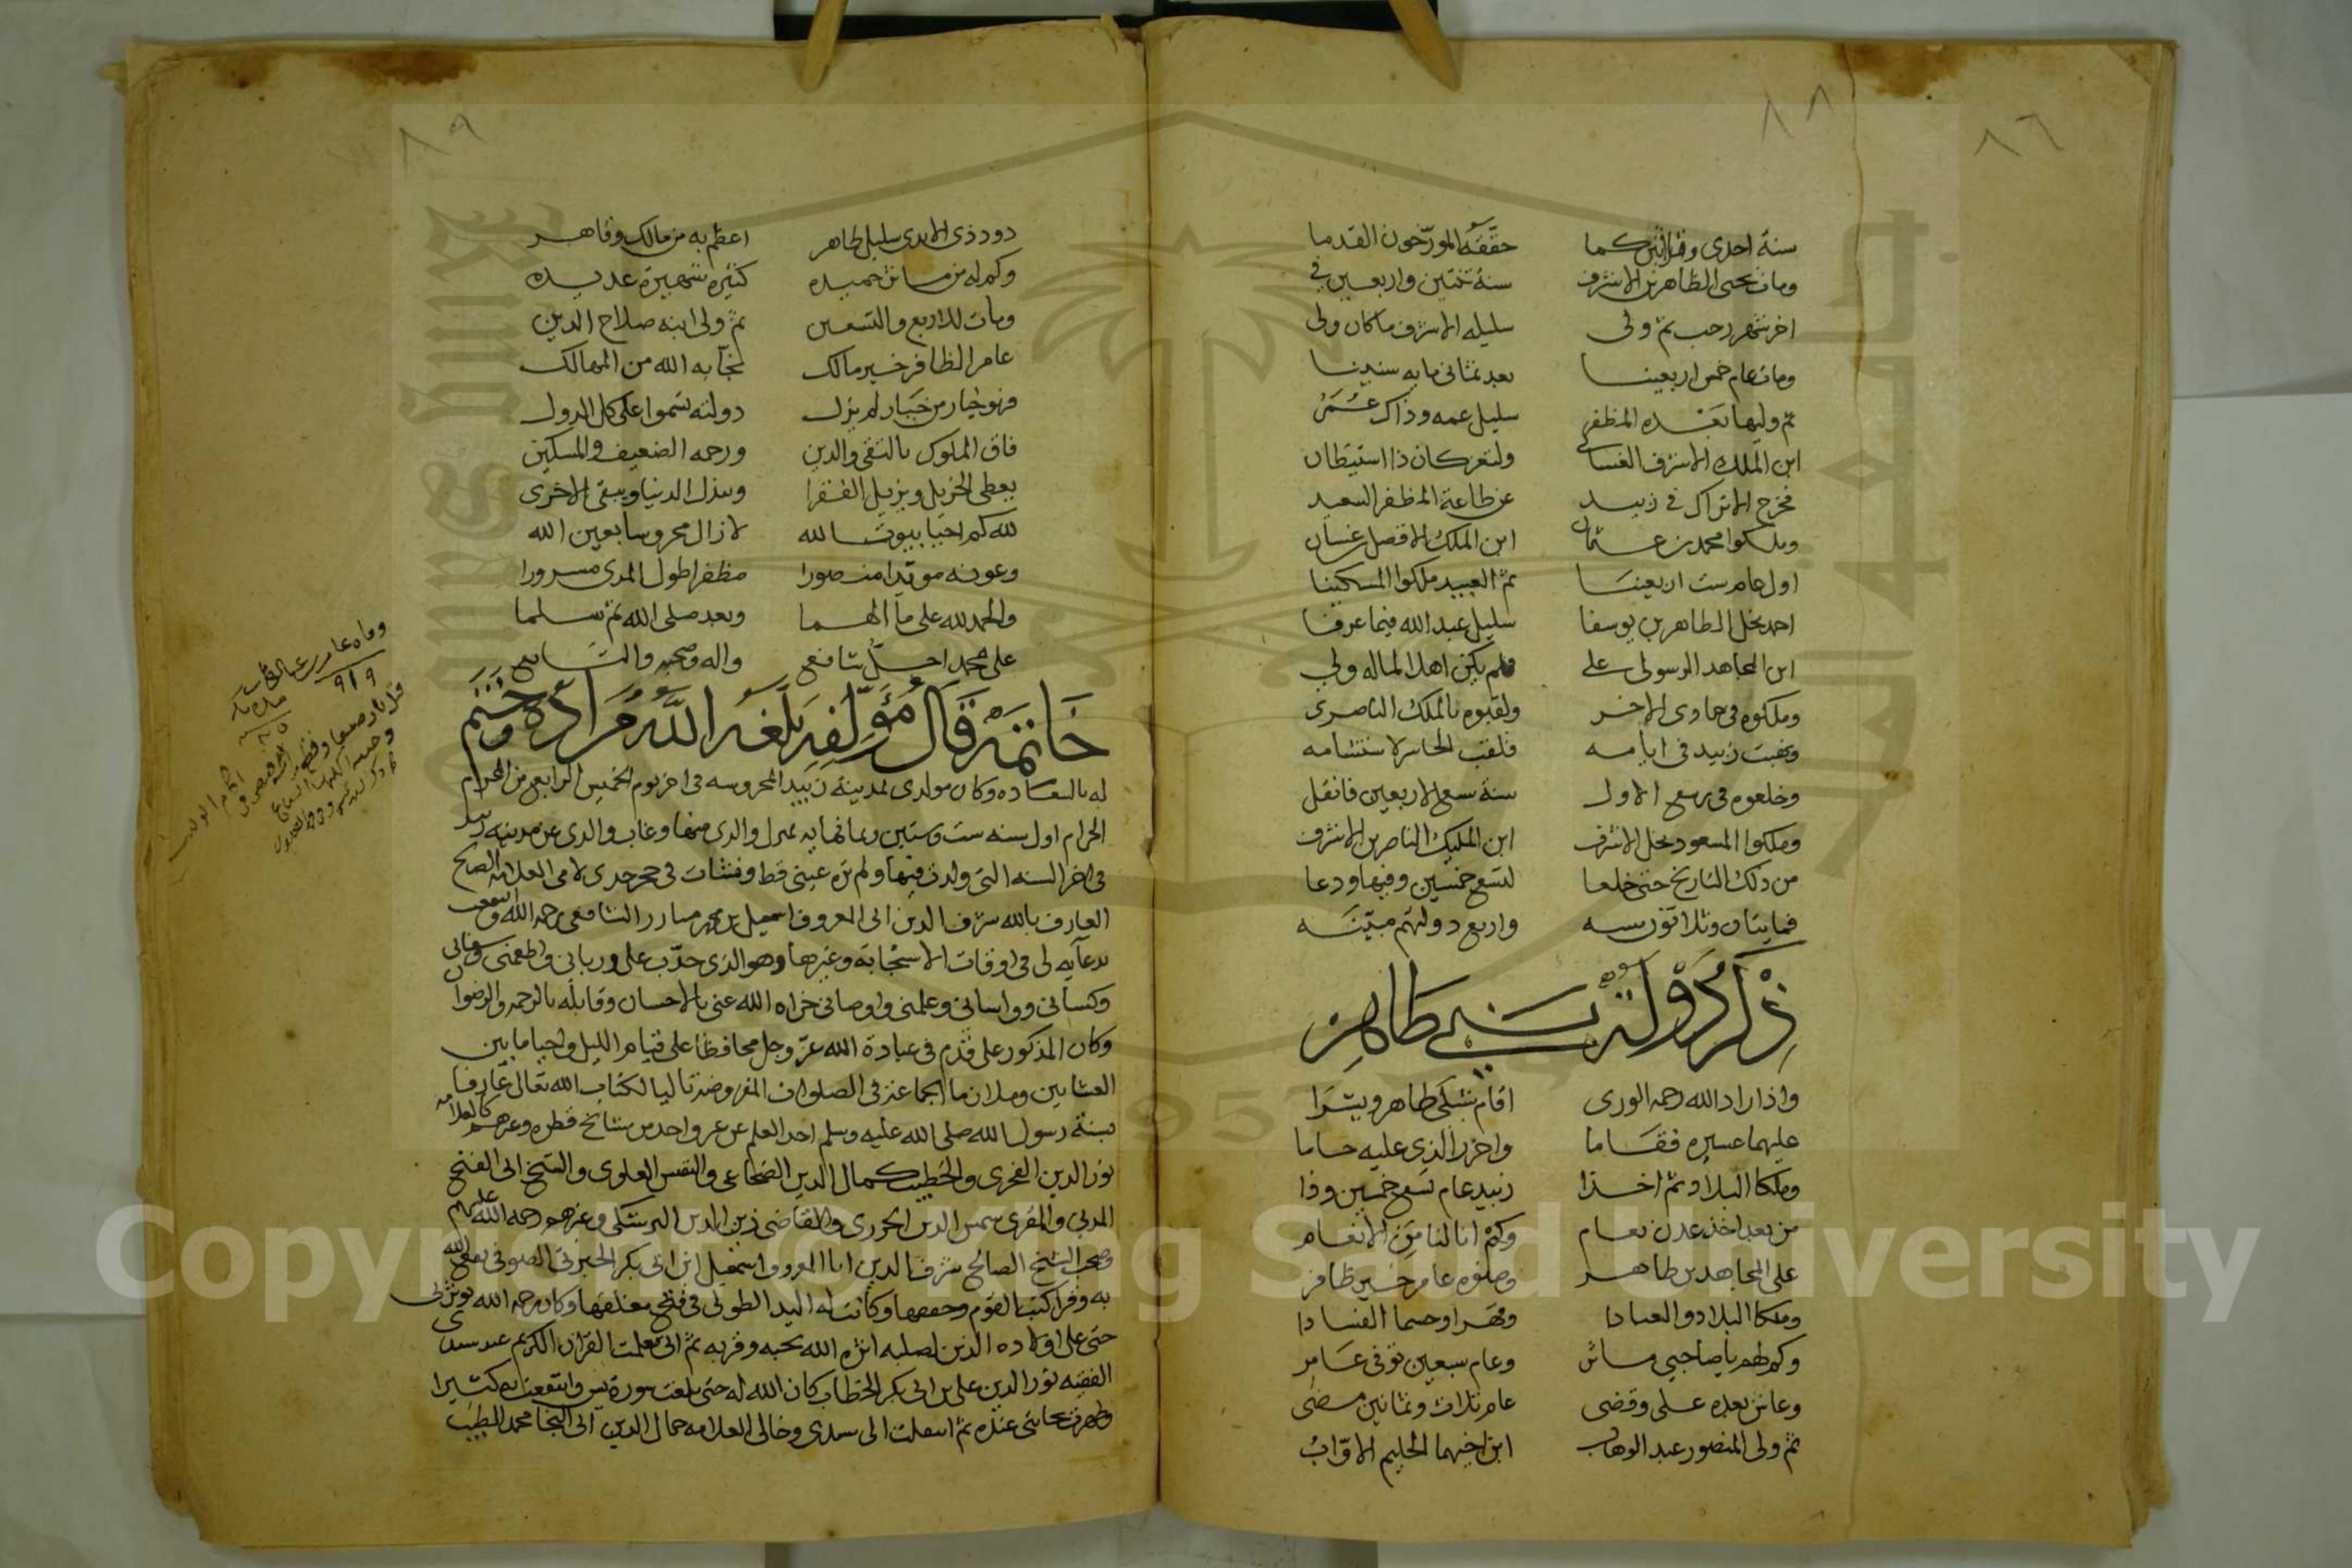 ٨٦
٨٨
سنة احدى وثلاثين كما حققه المورّخون القدما
ومات يحيى الظاهر بن الاشرف سنة ثنتين واربعين في
اخر شهر رجب ثم ولى سليله الاشرف ما كان ولى
ومات عام خمس اربعينا بعد ثماني مايه سنينا
ثم وليها بعده المظفر سليل عمه وذاك عمر
ابن الملك الاشرف الغساني ولتعز كان ذا استيطان
فخرج الاتراك في زبيد عن طاعة المظفر السعيد
وملكوا محمد بن عثمان ابن الملك الافضل غسان
اول عام ست اربعينا ثم العبيد ملكوا المسكينا
احمد نجل الظاهر بن يوسفا سليل عبد الله فيما عرفا
ابن المجاهد الرسولى على فلم يكن اهلا لما له ولي
وملكوه في جمادى الاخر ولقبوه بالملك الناصرى
ونهبت زبيد في ايامه فلقب الخاسر لاستشامه
وخلعوه في ربيع الاول سنة سبع الاربعين فانقل
وملكوا المسعود نجل الاشرف ابن المليك الناصر بن الاشرف
من ذلك التاريخ حتى خلعا لتسع خمسين وفيها ودعا
فمايتان وثلاثون سنه واربع دولتهم مبيّنه
ذكر دولة بني طاهر
واذ اراد الله رحمة الورى اقام نجلى طاهر ويسّرا
عليهما عسيره فقاما واحرزا الذى عليه حاما
وملكا البلاد ثم اخذا زبيد عام تسع خمسين وذا
من بعد اخذ عدن بعام وكم انالنا من الانعام
على المجاهد بن طاهر وصنوه عامر خير ظافر
وملكا البلاد والعبادا وقهرا وحسما الفسادا
وكم لهم يا صاحبي مآثر وعام سبعين توفى عامر
وعاش بعده على وقضى عام ثلاث وثمانين مضى
ثم ولى المنصور عبد الوهاب ابن اخيهما الحليم الاوّاب
٨٩
دود ذى الايدى سليل طاهر اعظم به من مالك وقاهر
وكم له من مآثر حميده كثيرة شهيرة عديده
ومات للاربع والتسعين ثم ولى ابنه صلاح الدين
عامر الظافر خير مالك نجّا به الله من المهالك
فهو خيار من خيار لم يزل دولته تسموا على كل الدول
فاق الملوك بالتقى والدين ورحمه الضعيف والمسكين
يعطى الجزيل ويزيل الفقرا ويبذل الدنيا ويبقى الاخرى
لله كم احيا بيوتا لله لا زال محروسا بعين الله
وعونه مويدا منصورا مظفرا طول المدى مسرورا
والحمد لله على ما الهما وبعد صلى الله ثم سلما
على محمد اجلّ شافع واله وصحبه والتابع
خاتمة قال مؤلفه بلغه الله مراده وختم
له بالسعاده وكان مولدى بمدينة زبيد المحروسه في اخر يوم الخميس الرابع من المحرام
الحرام اول سنه ست وستين وثمانمايه بمنزل والدى منها وغاب والدى عن مدينه زبيد
في اخر السنه التي ولدت فيها ولم تره عينى قط ونشات في حجر جدى لامى العلامه الصالح
العارف بالله شرف الدين ابى المعروف اسمعيل بن محمد مبارز الشافعى رحمه الله وانتفعت
بدعايه لى في اوقات الاستجابة وغيرها وهو الذى حدّب على وربانى واطعمنى وسقانى
وكسانى وواسانى وعلمنى واوصانى جزاه الله عنى بالاحسان وقابله بالرحمه والرضوان
وكان المذكور على قدم في عبادة الله عزّ وجل محافظا على قيام الليل واحيا ما بين
العشايين وملازما الجماعه في الصلوات المفروضه تاليا لكتاب الله تعالى عارفا
بسنة رسول الله صلى الله عليه وسلم اخذ العلم عن غير واحد من مشايخ قطره وغيرهم كالعلامه
نور الدين الفخرى والخطيب كمال الدين الضجاعى والنفيس العلوى والشيخ ابى الفتح
المدنى والمقرى شمس الدين الجزرى والقاضى زين الدين البرشكى وغيرهم رحمه الله عليهم
وصحب الشيخ الصالح شرف الدين ابا المعروف اسمعيل ابن ابى بكر الجبرتى الصوفى نفع الله
به وقرا كتب القوم وحققها وكانت له اليد الطولى في فتح مغلقها وكان رحمه الله يوثرنى
حتى على اولاده الذين لصلبه اثره الله بحبه وقربه ثم انى تعلمت القران الكريم عند سيدى
الفقيه نور الدين على بن ابى بكر الخطاب كان الله له حتى بلغت سورة يس وانتفعت به كثيرا
وظهرت نجابتى عنده ثم انتقلت الى سيدى وخالى العلامه جمال الدين ابى النجا محمد الطيب
وفاه عامر بن عبد الوهاب
٩١٩
Copyright © King Saud University